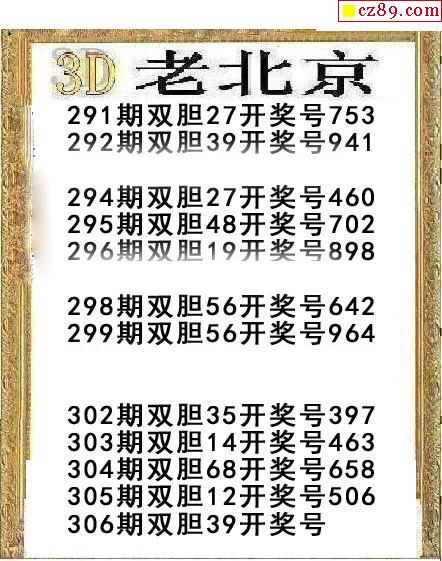 cz89.com
3D 老北京
291期双胆27开奖号753
292期双胆39开奖号941
294期双胆27开奖号460
295期双胆48开奖号702
296期双胆19开奖号898
298期双胆56开奖号642
299期双胆56开奖号964
302期双胆35开奖号397
303期双胆14开奖号463
304期双胆68开奖号658
305期双胆12开奖号506
306期双胆39开奖号